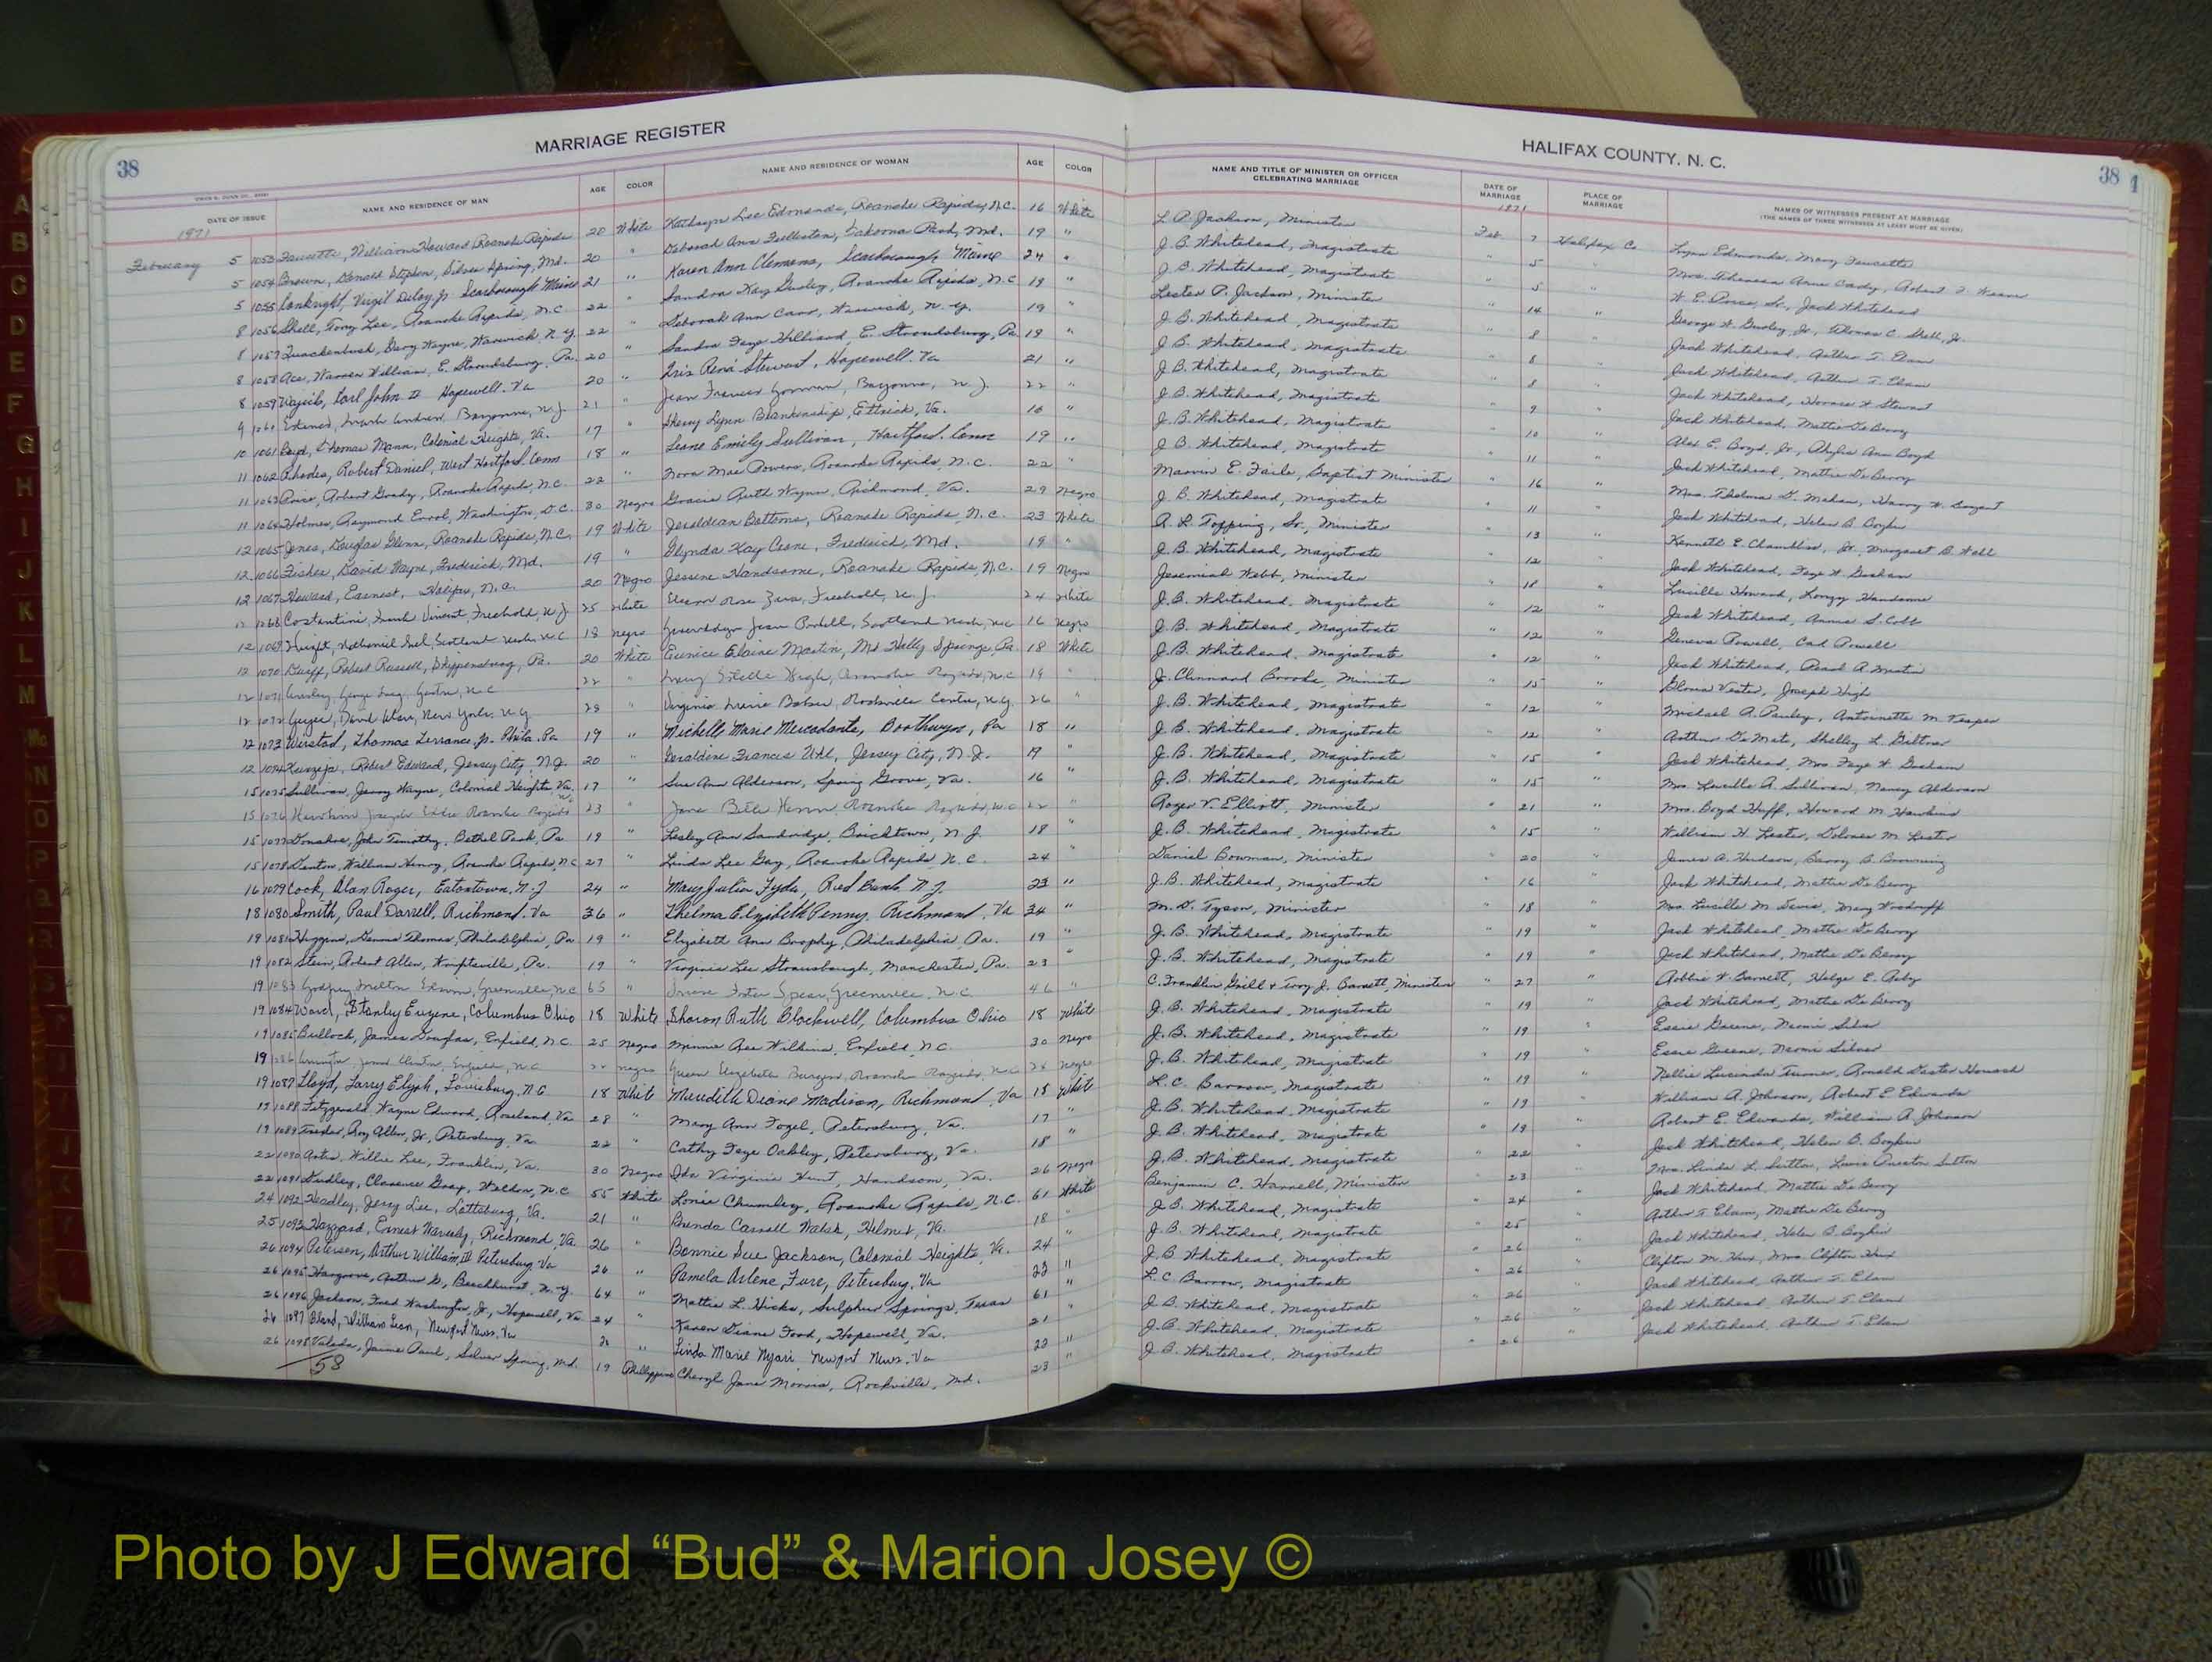 38
MARRIAGE REGISTER
HALIFAX COUNTY, N. C.
38
DATE OF ISSUE NAME AND RESIDENCE OF MAN AGE COLOR NAME AND RESIDENCE OF WOMAN AGE COLOR NAME AND TITLE OF MINISTER OR OFFICER CELEBRATING MARRIAGE DATE OF MARRIAGE PLACE OF MARRIAGE NAMES OF WITNESSES PRESENT AT MARRIAGE
(THE NAMES OF THREE WITNESSES AT LEAST MUST BE GIVEN)
1971 1971
February 5 1053 Faucette, William Howard Roanoke Rapids 20 White Kathryn Lee Edmonds, Roanoke Rapids, N.C. 16 White L. P. Jackson, Minister Feb 7 Halifax Co Lynn Edmonds, Mary Faucette
5 1054 Brown, Stephen, Silver Spring, Md. 20 " Deborah Ann Fullerton, Takoma Park, Md. 19 " J. B. Whitehead, Magistrate " 5 "
5 1055 Virgil Jr. Scarborough Maine 21 " Karen Ann Clemens, Scarborough Maine 24 " J. B. Whitehead, Magistrate " 5 " Jack Whitehead
8 1056 Shell, Tony Lee, Roanoke Rapids, N.C. 22 " Sandra Kay Gurley, Roanoke Rapids, N.C. 19 " Lester P. Jackson, Minister " 14 " George W. Gurley, Jr., Thomas C. Shell, Jr.
8 1057 Quackenbush, Gary Wayne, Warwick, N.Y. 22 " Deborah Ann Carr, Warwick, N.Y. 19 " J. B. Whitehead, Magistrate " 8 " Jack Whitehead, Arthur T. Elam
8 1058 Ace, Warren William, E. Stroudsburg, Pa. 20 " Sandra Faye Hilliard, E. Stroudsburg, Pa 19 " J. B. Whitehead, Magistrate " 8 " Jack Whitehead, Arthur T. Elam
8 1059 Carl John II Hopewell, Va 20 " Iris Rena Stewart, Hopewell, Va 21 " J. B. Whitehead, Magistrate " 8 " Jack Whitehead, Horace W. Stewart
9 1060 Bayonne, N.J. 21 " Jean Frances Gorman, Bayonne, N.J. 22 " J. B. Whitehead, Magistrate " 9 " Jack Whitehead, Mattie DeBerry
10 1061 Boyd, Thomas Mann, Colonial Heights, Va. 17 " Sherry Lynn Blankenship, Ettrick, Va. 16 " J. B. Whitehead, Magistrate " 10 " Alex E. Boyd, Jr., Ann Boyd
11 1062 Rhodes, Robert Daniel, West Hartford, Conn 18 " Emily Sullivan, Hartford, Conn 19 " J. B. Whitehead, Magistrate " 11 " Jack Whitehead, Mattie DeBerry
11 1063 Price, Robert Grady, Roanoke Rapids, N.C. 22 " Nora Mae Powers, Roanoke Rapids, N.C. 22 " Marvin E. Faile, Baptist Minister " 16 " Mrs. Thelma
11 1064 Holmes, Raymond Errol, Washington, D.C. 30 Negro Gracie Ruth Wynn, Richmond, Va. 29 Negro J. B. Whitehead, Magistrate " 11 " Jack Whitehead, Helen B. Boykin
12 1065 Jones, Douglas Glenn, Roanoke Rapids, N.C. 19 White Jeraldean Bottoms, Roanoke Rapids, N.C. 23 White R. L. Topping, Sr., Minister " 13 " Kenneth E. Chambliss, Jr., Margaret B. Wall
12 1066 Fisher, David Wayne, Frederick, Md. 19 " Glynda Kay Crone, Frederick, Md. 19 " J. B. Whitehead, Magistrate " 12 " Jack Whitehead, Faye W. Graham
12 1067 Howard, Earnest, Halifax, N.C. 20 Negro Jessene Handsome, Roanoke Rapids, N.C. 19 Negro Jeremiah Webb, Minister " 18 " Lucille Howard, Handsome
12 1068 Costentini, Frank Vincent Freehold, N.J. 25 White Rose Freehold, N.J. 24 White J. B. Whitehead, Magistrate " 12 " Jack Whitehead, Annie S. Cobb
12 1069 Scotland Neck, N.C. 18 Negro Gwendolyn Jean Scotland Neck, N.C. 16 Negro J. B. Whitehead, Magistrate " 12 " Geneva Powell, Powell
12 1070 Robert Russell, Shippensburg, Pa. 20 White Eunice Elaine Martin, Mt. Holly Springs, Pa. 18 White J. B. Whitehead, Magistrate " 12 " Jack Whitehead, Pearl A. Martin
12 1071 George 22 " Lucy Estelle High, Roanoke Rapids, N.C. 19 " J. Clennard Brooks, Minister " 15 " Gloria Vester, Joseph High
12 1072 Geyer, David New York, N.Y. 29 " Virginia Baker, Rockville Centre, N.Y. 26 " J. B. Whitehead, Magistrate " 12 " Michael A. Pauley, Antoinette M.
12 1073 Thomas Terrance, Jr. Phila. Pa 19 " Michelle Marie Mercadante, Boothwyn, Pa 18 " J. B. Whitehead, Magistrate " 12 " Arthur Shelley L.
12 1074 Robert Edward, Jersey City, N.J. 20 " Geraldine Frances Jersey City, N.J. 19 " J. B. Whitehead, Magistrate " 15 " Jack Whitehead, Mrs. Faye W. Graham
15 1075 Sullivan, Jerry Wayne, Colonial Heights, Va. 17 " Sue Ann Alderson, Spring Grove, Va. 16 " J. B. Whitehead, Magistrate " 15 " Mrs. Lucille A. Sullivan, Nancy Alderson
15 1076 Joseph Eddie Roanoke Rapids N.C. 23 " Jane Beth Roanoke Rapids, N.C. 22 " Roger V. Elliott, Minister " 21 " Mrs. Boyd Huff, Howard M. Hawkins
15 1077 Donahoe, John Timothy, Bethel Park, Pa 19 " Lesley Ann Bricktown, N.J. 18 " J. B. Whitehead, Magistrate " 15 " William H. Lester, Delores M. Lester
15 1078 Denton, William Henry, Roanoke Rapids, N.C. 27 " Linda Lee Gay, Roanoke Rapids, N.C. 24 " Daniel Bowman, Minister " 20 " James A. Hudson, Barry B. Browning
16 1079 Cook, Alan Roger, Eatontown, N.J. 24 " Mary Julia Fyda, Red Bank N.J. 23 " J. B. Whitehead, Magistrate " 16 " Jack Whitehead, Mattie DeBerry
18 1080 Smith, Paul Darrell, Richmond, Va 36 " Thelma Elizabeth Penny, Richmond, Va 34 " M. D. Tyson, Minister " 18 " Mrs. Lucille M. Davis, Mary Woodruff
19 1081 Huggins, Dennis Thomas, Philadelphia, Pa 19 " Elizabeth Ann Brophy, Philadelphia, Pa. 19 " J. B. Whitehead, Magistrate " 19 " Jack Whitehead, Mattie DeBerry
19 1082 Stein, Robert Allen, Pa. 19 " Virginia Lee Strausbaugh, Manchester, Pa. 23 " J. B. Whitehead, Magistrate " 19 " Jack Whitehead, Mattie DeBerry
19 1083 Godfrey, Milton Greenville, N.C. 65 " Foster Spear, Greenville, N.C. 46 " C. Franklin Grill & Troy J. Barrett, Ministers " 27 " W. Barnett, Helge E.
19 1084 Ward, Stanley Eugene, Columbus Ohio 18 White Sharon Ruth Blackwell, Columbus Ohio 18 White J. B. Whitehead, Magistrate " 19 " Jack Whitehead, Mattie DeBerry
19 1085 Bullock, James Douglas, Enfield, N.C. 25 Negro Minnie Wilkins, Enfield, N.C. 30 Negro J. B. Whitehead, Magistrate " 19 " Essie Greene, Neomi Silver
19 1086 Enfield, N.C. Negro Elizabeth Roanoke Rapids, N.C. Negro J. B. Whitehead, Magistrate " 19 " Essie Greene, Neomi Silver
19 1087 Lloyd, Larry Elijah, Louisburg, N.C. 18 White Meredith Diane Madison, Richmond, Va 18 White L. C. Barrow, Magistrate " 19 " Nellie Lucinda Turner, Ronald
19 1088 Fitzgerald, Wayne Edward, Va 28 " Mary Ann Fogel, Petersburg, Va. 17 " J. B. Whitehead, Magistrate " 19 " William A. Johnson, Robert E. Edwards
19 1089 Roy Allen, Jr., Petersburg, Va 22 " Cathy Faye Oakley, Petersburg, Va. 18 " J. B. Whitehead, Magistrate " 19 " Robert E. Edwards, William A. Johnson
22 1090 Artis, Willie Lee, Franklin, Va. 30 Negro Ida Virginia Hunt, Handsom, Va. 26 Negro J. B. Whitehead, Magistrate " 22 " Jack Whitehead, Helen B. Boykin
22 1091 Dudley, Clarence Gray, Weldon, N.C. 55 White Lonie Chumbley, Roanoke Rapids, N.C. 61 White Benjamin C. Harrell, Minister " 23 " Mrs. Linda L. Sutton, Lewis Preston Sutton
24 1092 Headley, Jerry Lee, Lottsburg, Va. 21 " Brenda Carroll Walsh, Helmet, Va. 18 " J. B. Whitehead, Magistrate " 24 " Jack Whitehead, Mattie DeBerry
25 1093 Hazzard, Ernest Waverly, Richmond, Va. 26 " Bonnie Sue Jackson, Colonial Heights, Va. 24 " J. B. Whitehead, Magistrate " 25 " Arthur T. Elam, Mattie DeBerry
26 1094 Peterson, Arthur William, III Petersburg, Va 26 " Pamela Arlene Petersburg, Va 23 " J. B. Whitehead, Magistrate " 26 " Jack Whitehead, Helen B. Boykin
26 1095 Hargrove, Arthur Beechhurst, N.Y. 64 " Mattie L. Hicks, Sulphur Springs, Texas 61 " L. C. Barrow, Magistrate " 26 " Clifton M. Hux, Mrs. Clifton Hux
26 1096 Jackson, Fred Washington, Jr., Hopewell, Va 24 " Karen Diane Ford, Hopewell, Va. 21 " J. B. Whitehead, Magistrate " 26 " Jack Whitehead, Arthur T. Elam
26 1097 Bland, William Leon, Newport News, Va " Linda Marie Nyari, Newport News, Va 22 " J. B. Whitehead, Magistrate " 26 " Jack Whitehead, Arthur T. Elam
26 1098 Jaime Paul, Silver Spring, Md. 19 Philippine Cheryl Jane Morris, Rockville, Md. 23 " J. B. Whitehead, Magistrate " 26 " Jack Whitehead, Arthur T. Elam
58
A
B
C
D
E
F
G
H
I
J
K
L
M
Mc
N
O
P
Q
R
S
Photo by J Edward “Bud” & Marion Josey ©